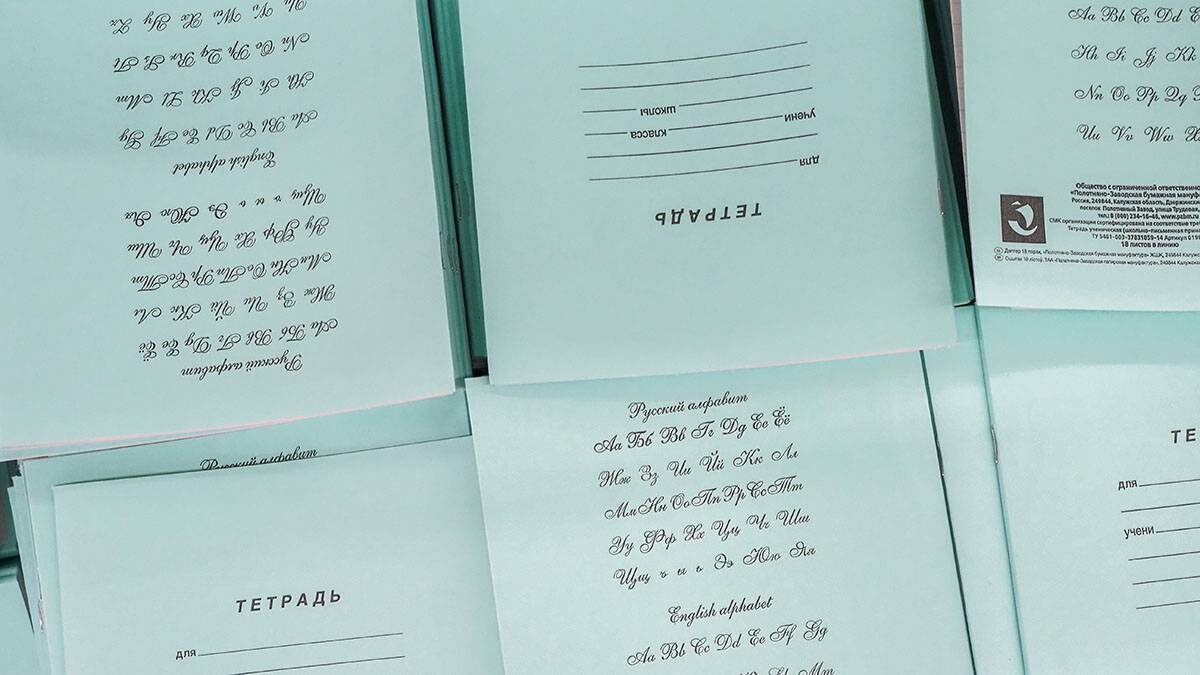 Русский алфавит
Аа Бб Вв Гг Дд Ее Ёё
Жж Зз Ии Йй Кк Лл
Мм Нн Оо Пп Рр Сс Тт
Уу Фф Хх Цц Чч Шш
Щщ ъ ы ь Ээ Юю Яя
English alphabet
Aa Bb Cc Dd Ee Ff Gg
Hh Ii Jj Kk Ll Mm
Nn Oo Pp Qq Rr Ss Tt
Uu Vv Ww Xx Yy Zz
ТЕТРАДЬ
для
учени класса
школы
Aa Bb Cc Dd E
Hh Ii Jj Kk
Nn Oo Pp Qq
Uu Vv Ww X
Общество с ограниченной ответственно
«Полотняно-Заводская бумажная мануф
Россия, 249844, Калужская область, Дзержински
поселок Полотняный Завод, улица Трудовая,
тел.: 8 (800) 234-16-46, www.pzbm.ru
СМК организации сертифицирована на соответствие треб
Тетрадь ученическая (школьно-письменная прин
ТУ 5461-003-37831859-14 Артикул
18 листов в линию
Русский алфавит
ТЕТРАДЬ
для
Русский алфавит
Аа Бб Вв Гг Дд Ее Ёё
Жж Зз Ии Йй Кк Лл
Мм Нн Оо Пп Рр Сс Тт
Уу Фф Хх Цц Чч Шш
Щщ ъ ы ь Ээ Юю Яя
English alphabet
Aa Bb Cc Dd Ee Ff Gg
Mm
ТЕ
для
учени